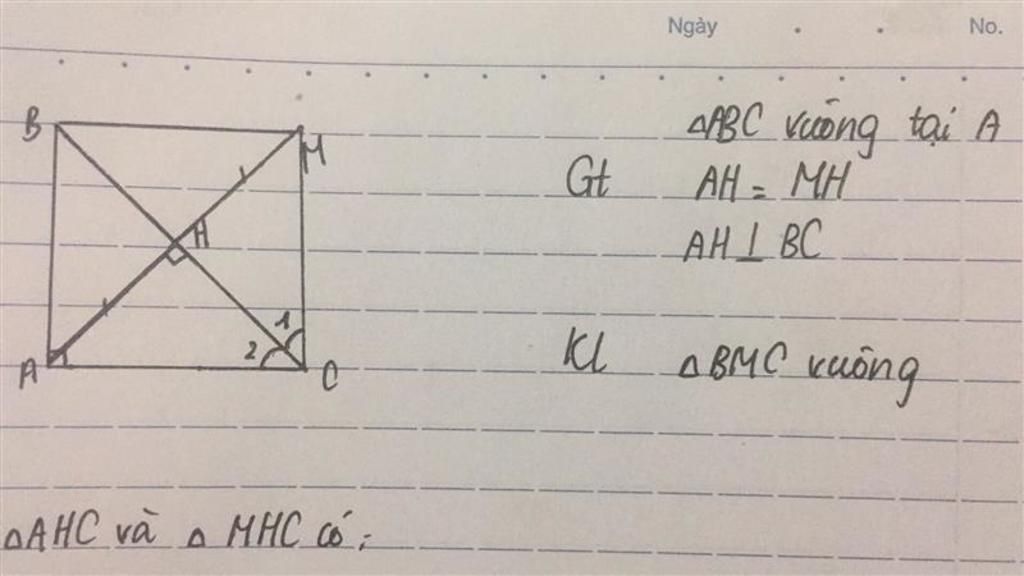 Ngày No.
B M
H
1
2
A C
△ABC vuông tại A
Gt AH = MH
AH ⊥ BC
Kl △BMC vuông
△AHC và △ MHC có :